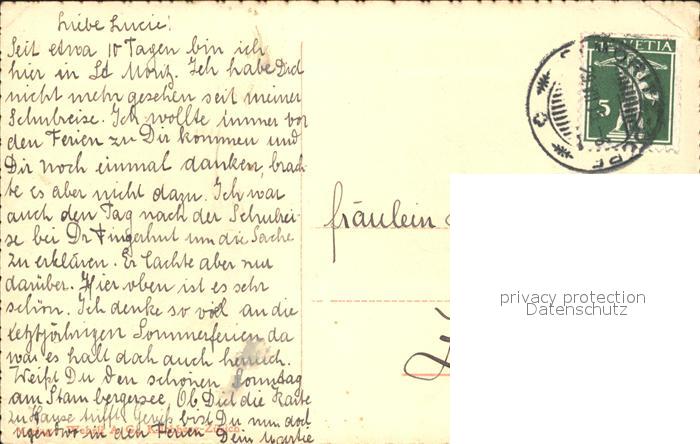 Liebe Lucie!
Seit etwa 10 Tagen bin ich
hier in St Moriz. Ich habe Dich
nicht mehr gesehen seit meiner
Schulreise. Ich wollte immer vor
den Ferien zu Dir kommen und
Dir noch einmal danken, brach-
te es aber nicht dazu. Ich war
auch den Tag nach der Schulrei-
se bei Dr Fingerhut um die Sache
zu erklären. Er lachte aber nur
darüber. Hier oben ist es sehr
schön. Ich denke so viel an die
letztjährigen Sommerferien da
war es halt doch auch herrlich.
Weißt Du den schönen Sonntag
am Starnbergersee. Ob Dich die Karte
zu Hause trifft? Gewiß bist Du nun doch
irgendwo in den Ferien. Dein
HELVETIA
5
Fräulein
privacy protection
Datenschutz